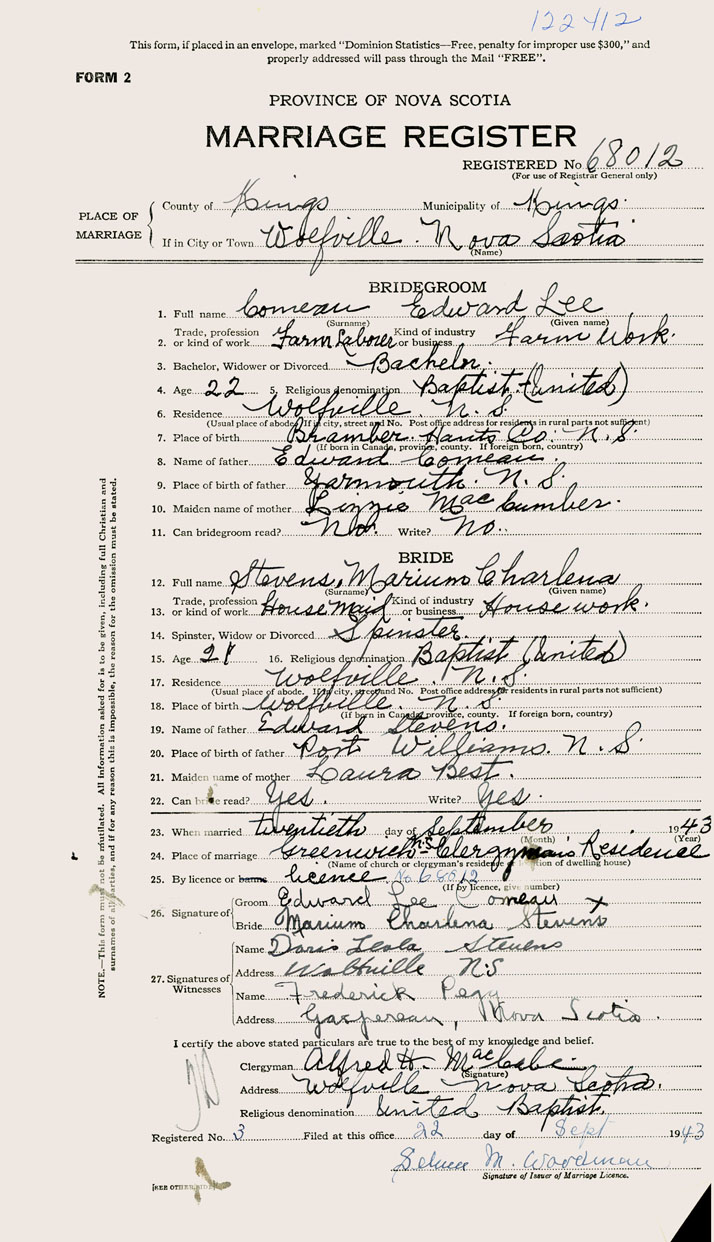 122412
This form, if placed in an envelope, marked "Dominion Statistics—Free, penalty for improper use $300," and
properly addressed will pass through the Mail "FREE".
FORM 2
PROVINCE OF NOVA SCOTIA
MARRIAGE REGISTER
REGISTERED No. 68012
(For use of Registrar General only)
PLACE OF MARRIAGE
County of Kings Municipality of Kings.
If in City or Town Wolfville. Nova Scotia
(Name)
BRIDEGROOM
1. Full name Comeau Edward Lee
(Surname) (Given name)
2. Trade, profession or kind of work Farm Laborer Kind of industry or business Farm Work.
3. Bachelor, Widower or Divorced Bachelor.
4. Age 22 5. Religious denomination Baptist (United)
6. Residence Wolfville N. S.
(Usual place of abode. If in city, street and No. Post office address for residents in rural parts not sufficient)
7. Place of birth Bramber. Hants Co. N. S.
(If born in Canada, province, county. If foreign born, country)
8. Name of father Edward Comeau.
9. Place of birth of father Yarmouth. N. S.
10. Maiden name of mother Lizzie MacCumber.
11. Can bridegroom read? No. Write? No.
BRIDE
12. Full name Stevens, Marium Charlena
(Surname) (Given name)
13. Trade, profession or kind of work House Maid Kind of industry or business House work.
14. Spinster, Widow or Divorced Spinster.
15. Age 21 16. Religious denomination Baptist (United)
17. Residence Wolfville. N. S.
(Usual place of abode. If in city, street and No. Post office address for residents in rural parts not sufficient)
18. Place of birth Wolfville. N. S.
(If born in Canada, province, county. If foreign born, country)
19. Name of father Edward Stevens.
20. Place of birth of father Port Williams. N. S.
21. Maiden name of mother Laura Best.
22. Can bride read? Yes. Write? Yes.
23. When married twentieth day of September 1943
(Month) (Year)
24. Place of marriage Greenwich N.S. Clergyman's Residence
(Name of church or clergyman's residence or location of dwelling house)
25. By licence or banns licence No 68012
(If by licence, give number)
26. Signature of
Groom Edward Lee Comeau x
Bride Marium Charlena Stevens
27. Signatures of Witnesses
Name Doris Leola Stevens
Address Wolfville N.S
Name Frederick Pegg
Address Gaspereau, Nova Scotia.
I certify the above stated particulars are true to the best of my knowledge and belief.
Clergyman Alfred H. MacCabe.
(Signature)
Address Wolfville Nova Scotia.
Religious denomination United Baptist.
Registered No. 3 Filed at this office 22 day of Sept 1943
M. Woodman
Signature of Issuer of Marriage Licence.
[SEE OTHER SIDE]
NOTE.—This form must not be mutilated. All information asked for is to be given, including full Christian and
surnames of all parties, and if for any reason this is impossible, the reason for the omission must be stated.